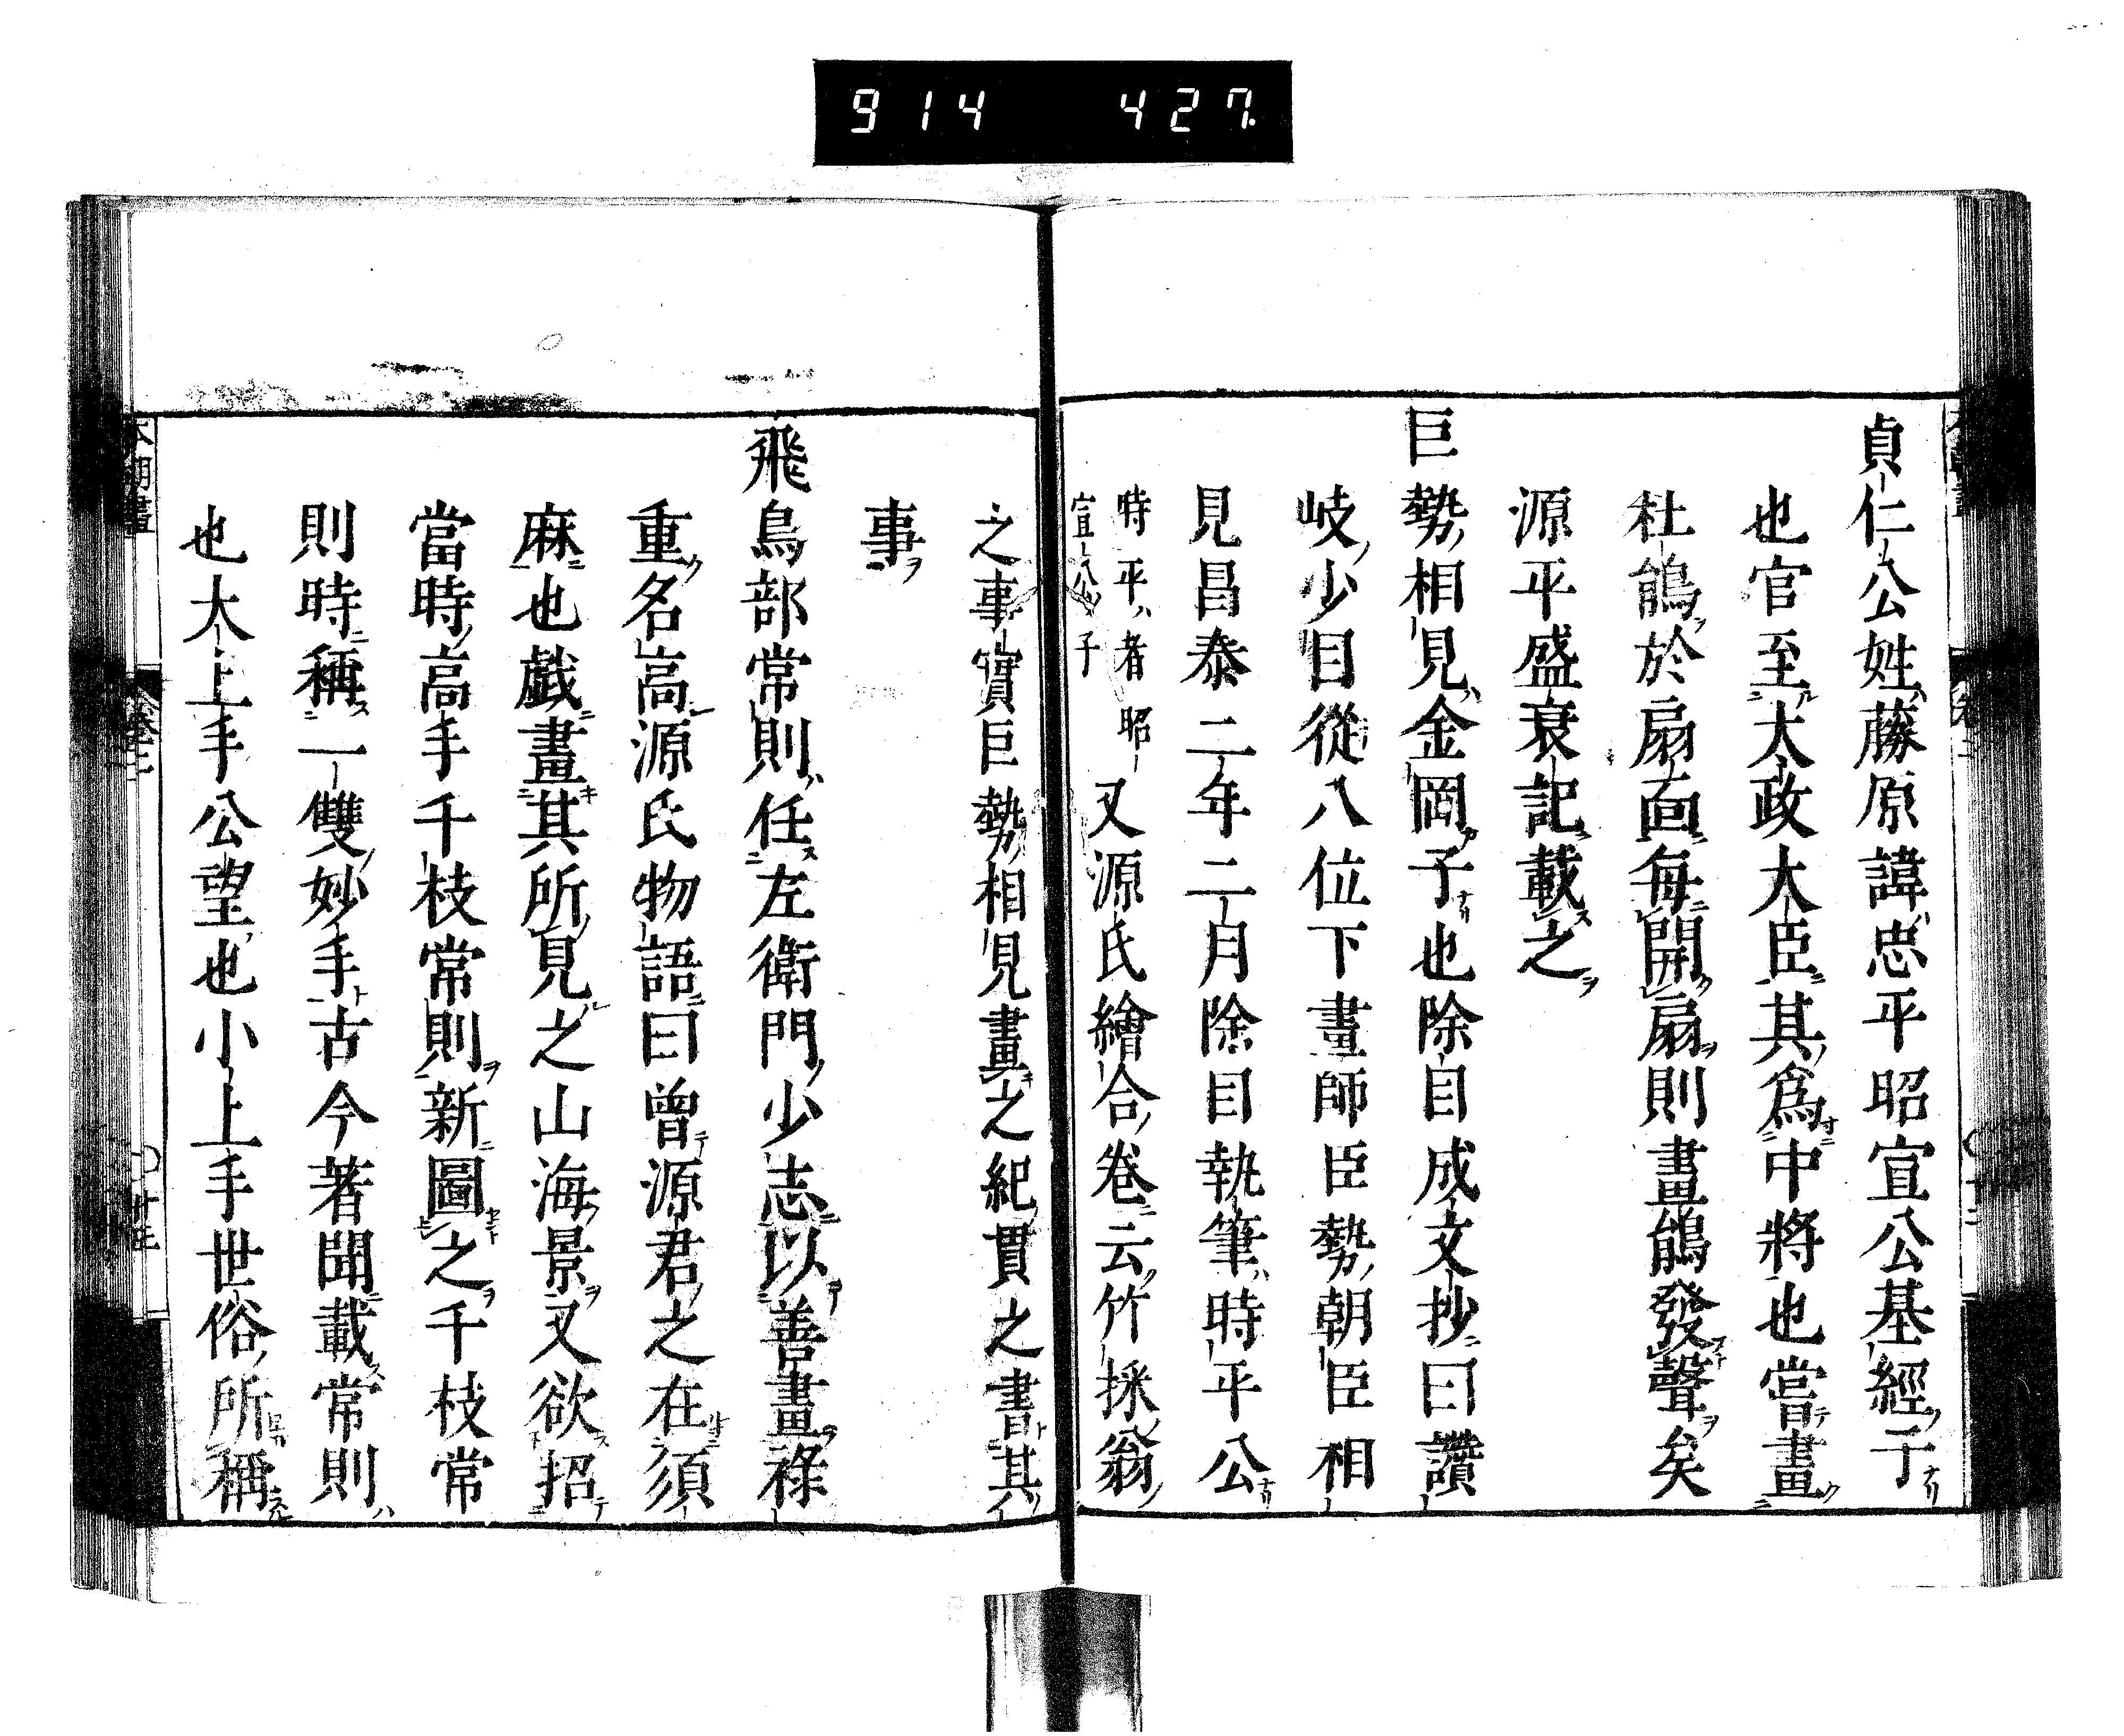 914 427
貞仁公姓藤原諱忠平昭宣公基經子
也官至太政大臣其爲中將也當畫
杜鵑於扇面每開扇則畫鵑發聲矣
源平盛衰記載之
巨勢相見金岡子也除目成文抄曰讚
岐少目從八位下畫師臣勢朝臣相
見昌泰二年二月除目執筆時平公
時平者昭
宣公子
又源氏繪合卷云竹採翁
之事實巨勢相見畫之紀貫之書其
事
飛鳥部常則任左衛門少志以善畫祿
重名高源氏物語曰曾源君之在須
麻也戲畫其所見之山海景又欲招
當時高手千枝常則新圖之千枝常
則時稱一雙妙手古今著聞載常則
也大上手公望也小上手世俗所稱